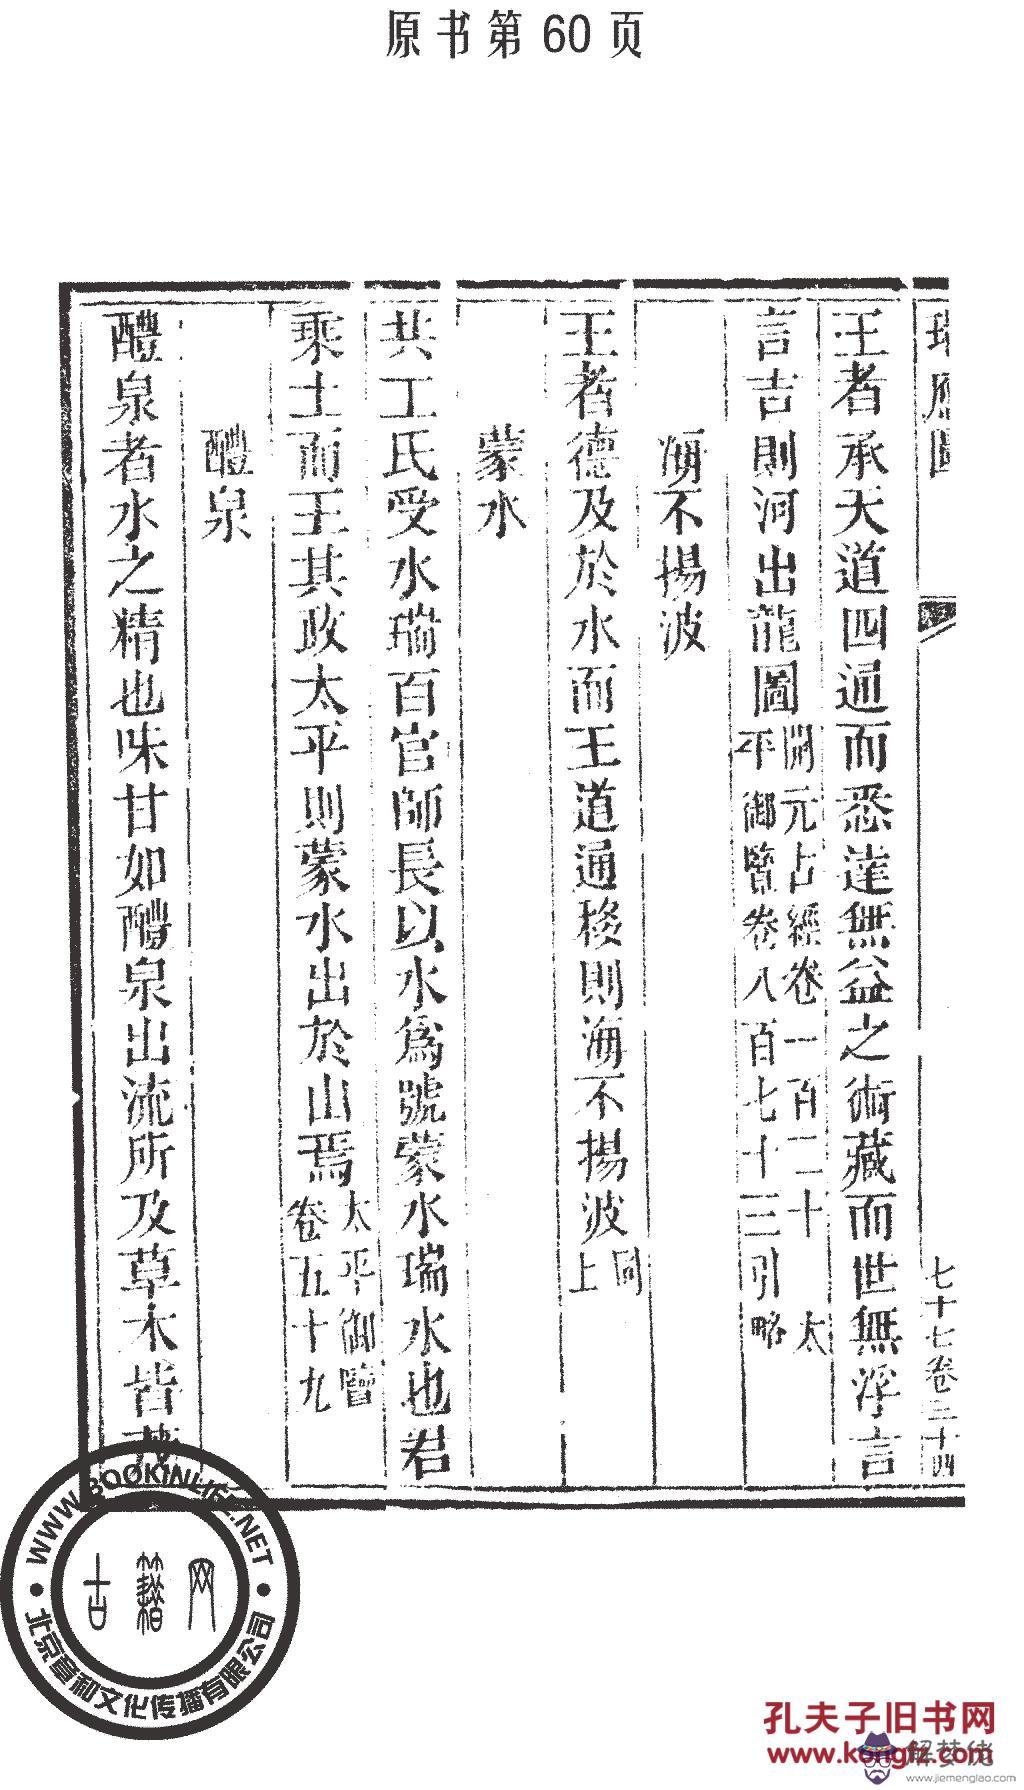 原书第60页
瑞應圖
七十七卷三十四
王者承天道四通而悉達無益之術藏而世無浮言
言吉則河出龍圖開元占經卷一百二十 太平御覽卷八百七十三引略
海不揚波
王者德及於水而王道通移則海不揚波同上
蒙水
共工氏受水瑞百官師長以水爲號蒙水瑞水也君
乘土而王其政太平則蒙水出於山焉太平御覽卷五十九
醴泉
醴泉者水之精也味甘如醴泉出流所及草木皆茂
WWW.BOOKINLIFE.NET
古籍网
北京章和文化传播有限公司
孔夫子旧书网
www.kongfz.com
解梦佬
www.jiemenglao.com